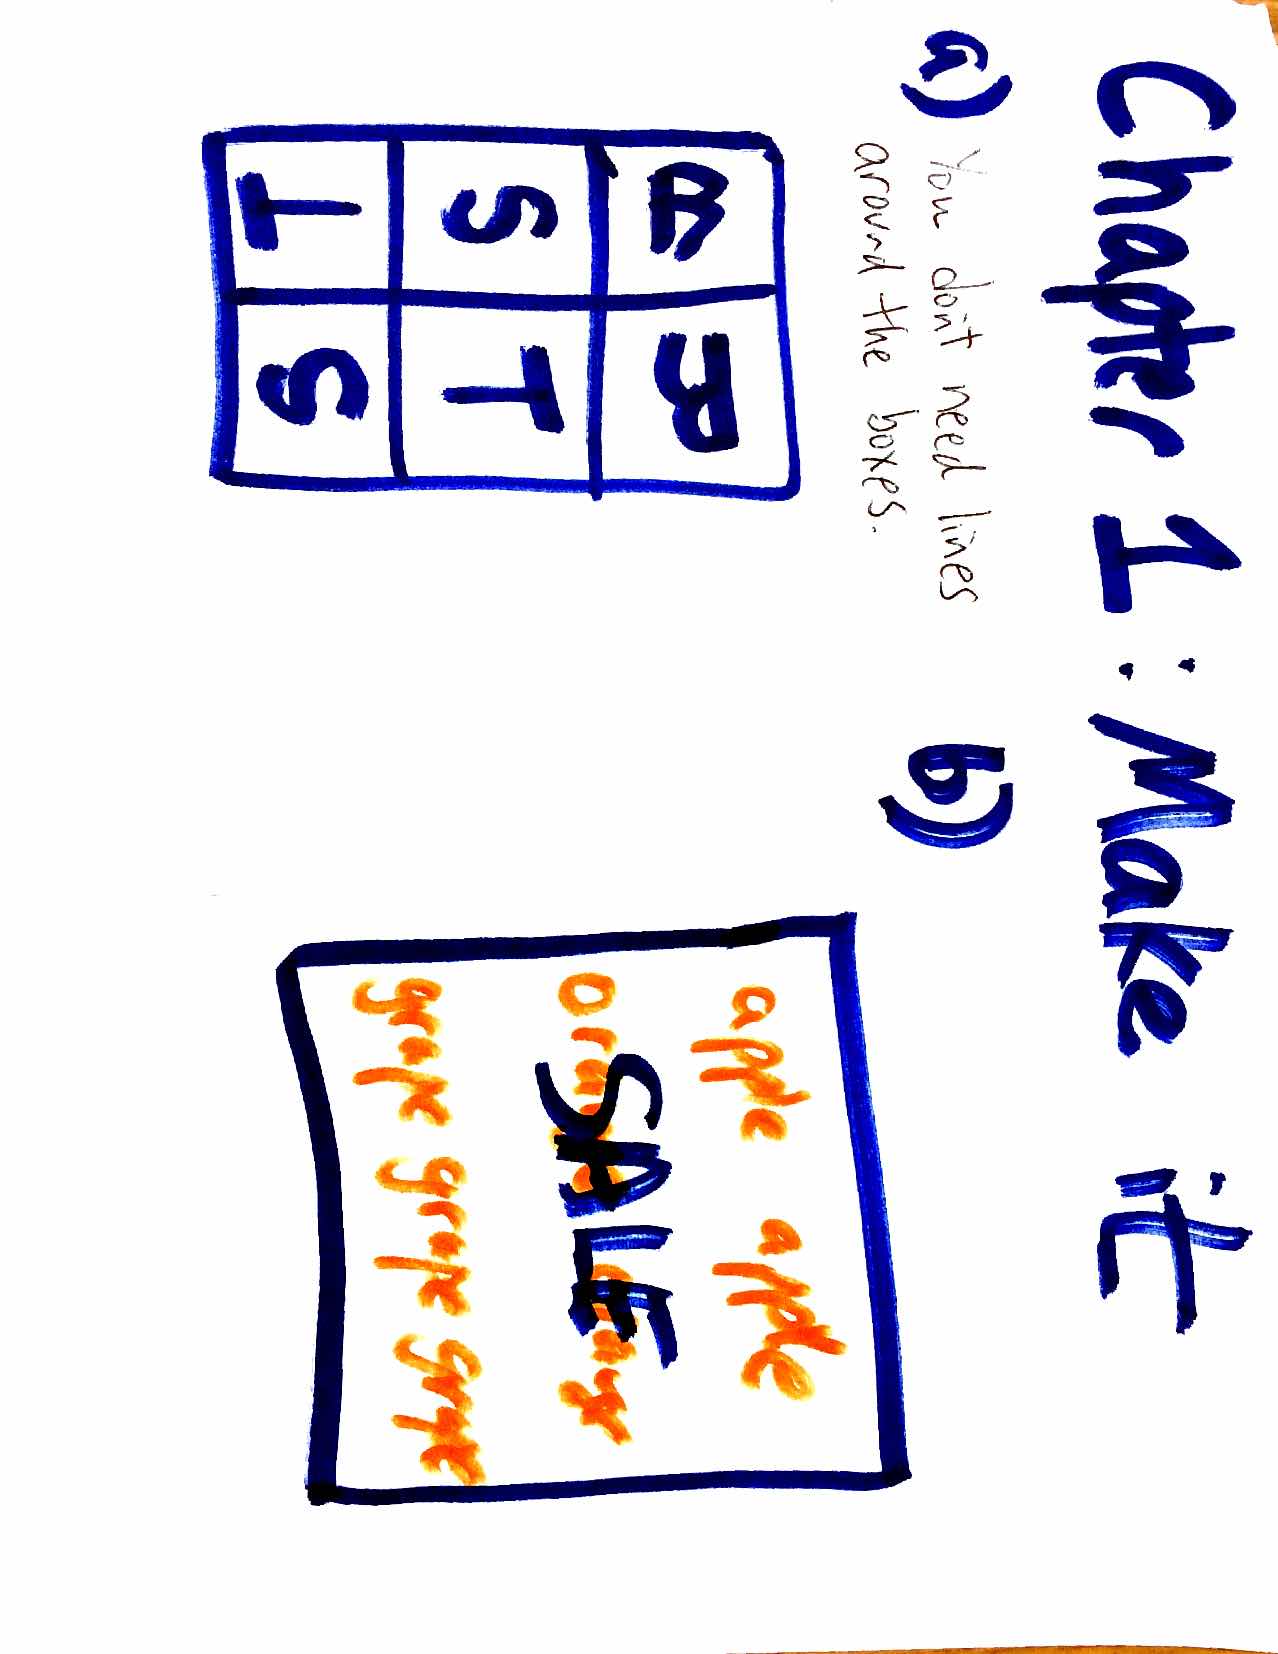 Chapter 1: Make it
a) You don't need lines
around the boxes.
B B
S T
T S
b)
apple apple
orange orange
SALE
grape grape grape